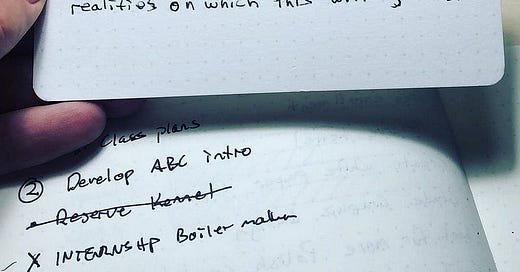 realities on which this
class plans
② Develop ABC intro
• Reserve Kennel
X INTERNSHP Boiler maker